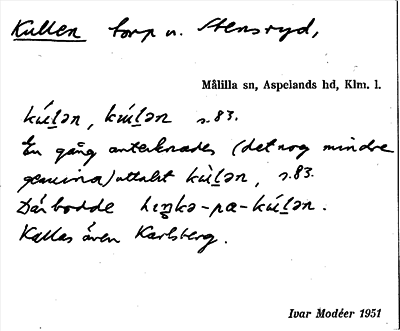 Kullen torp u. Stensryd,
Målilla sn, Aspelands hd, Klm. l.
kúl̲ən, kúl̲ən s.83.
En gång antecknades (det nog mindre
genuina) uttalet kùl̲ən, s.83.
Där bodde hiŋkə-pa-kúl̲ən.
Kallas även Karlsberg.
Ivar Modéer 1951